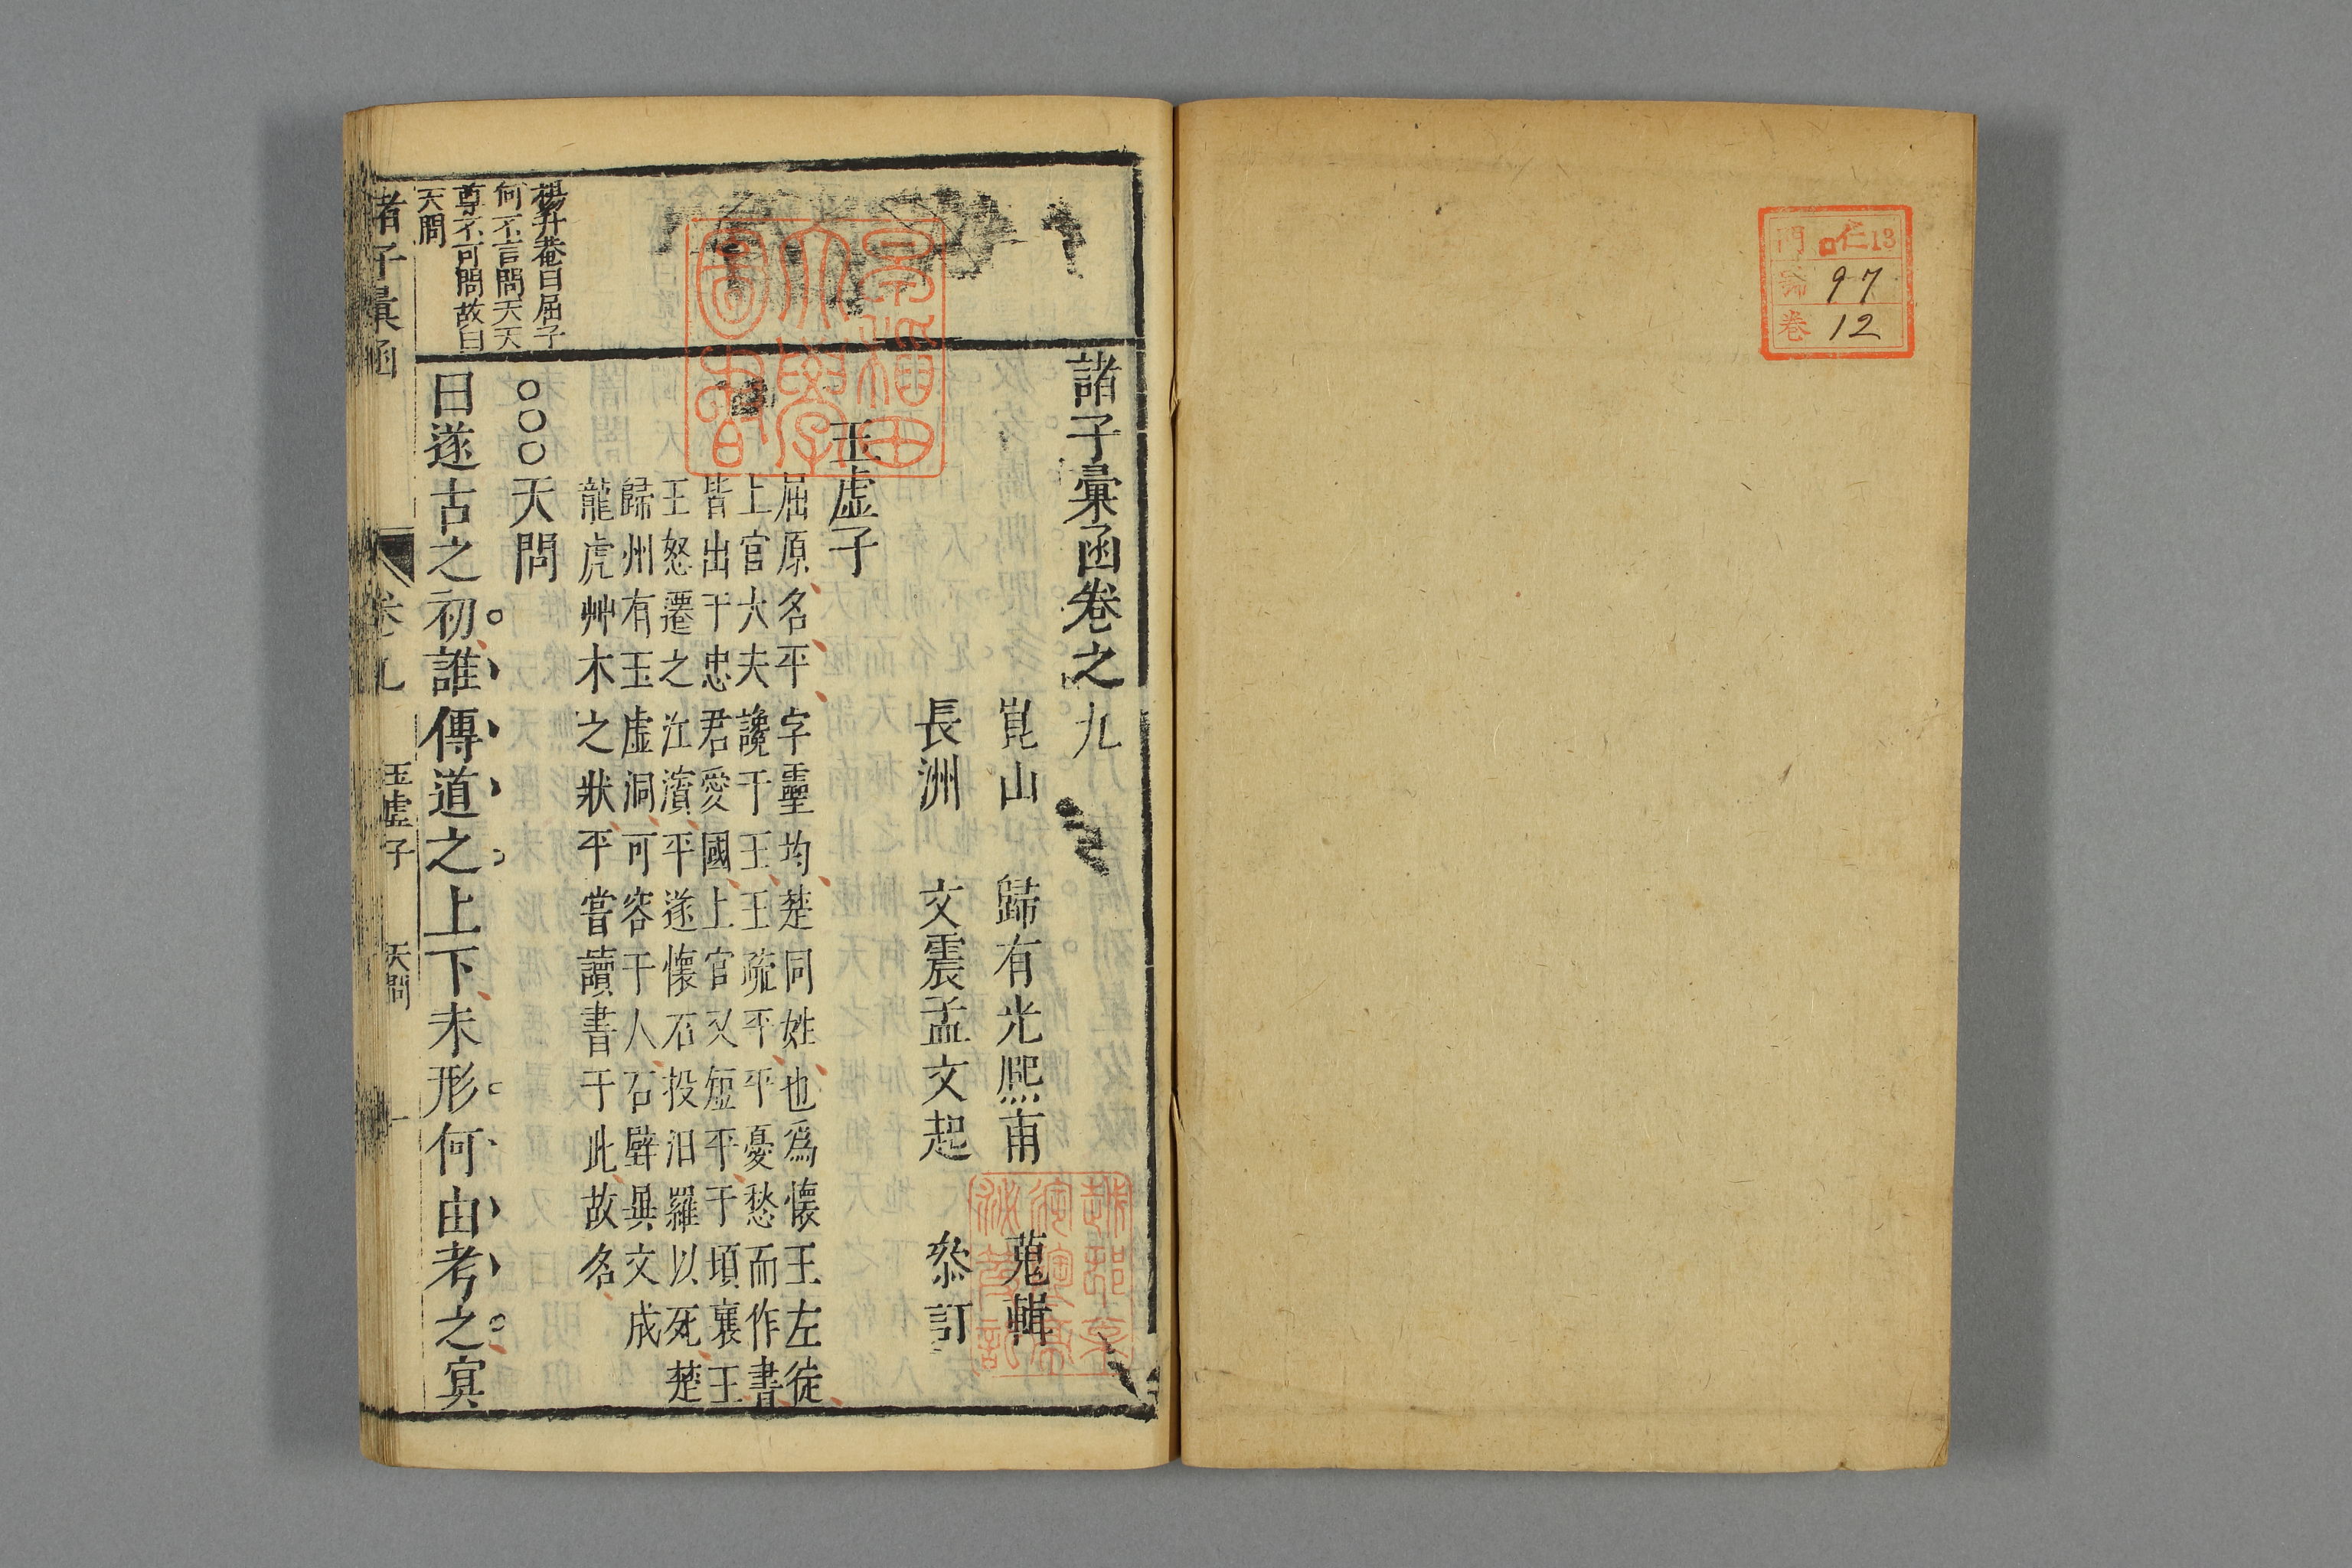 門 仁13
號 97
卷 12
諸子彙函卷之九
崑山 歸有光熙甫 蒐輯
長洲 文震孟文起 叅訂
玉虛子
屈原名平字靈均楚同姓也爲懷王左徒
上官大夫讒于王王疏平平憂愁而作書
皆出于忠君愛國上官又短平于頃襄王
王怒遷之江濱平遂懷石投汨羅以死楚
歸州有玉虛洞可容千人石壁異文成
龍虎艸木之狀平嘗讀書于此故名
○○○天問
楊升菴曰屈子
何不言問天天
尊不可問故曰
天問
曰遂古之初誰傳道之上下未形何由考之冥
諸子彙函 卷九 玉虛子 天問 一
早稲田
大學
圖書